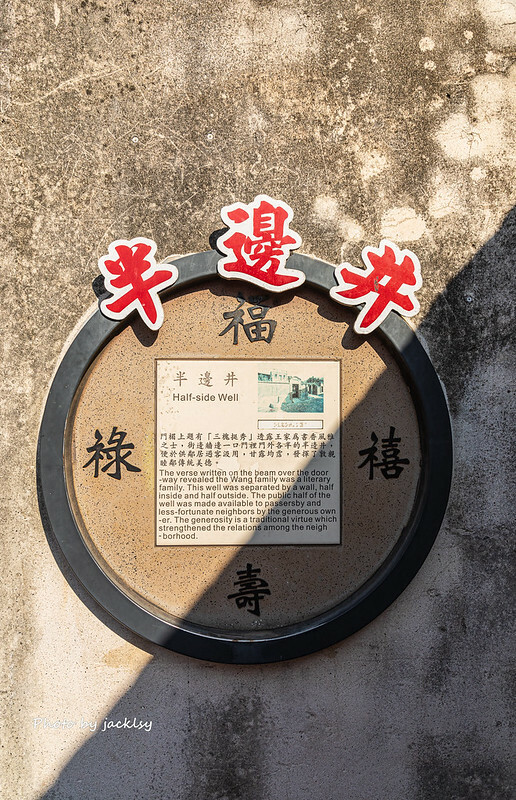 半邊井
福
祿
禧
壽
半邊井
Half-side Well
門楣上題有「三槐挺秀」透露王家為書香風雅
之士，街邊牆邊一口門裡門外各半的半邊井，
便於供鄰居過客汲用，甘露均霑，發揮了敦親
睦鄰傳統美德。
The verse written on the beam over the door
-way revealed the Wang family was a literary
family. This well was separated by a wall, half
inside and half outside. The public half of the
well was made available to passersby and
less-fortunate neighbors by the generous own
-er. The generosity is a traditional virtue which
strengthened the relations among the neigh
-borhood.
Photo by jacklsy